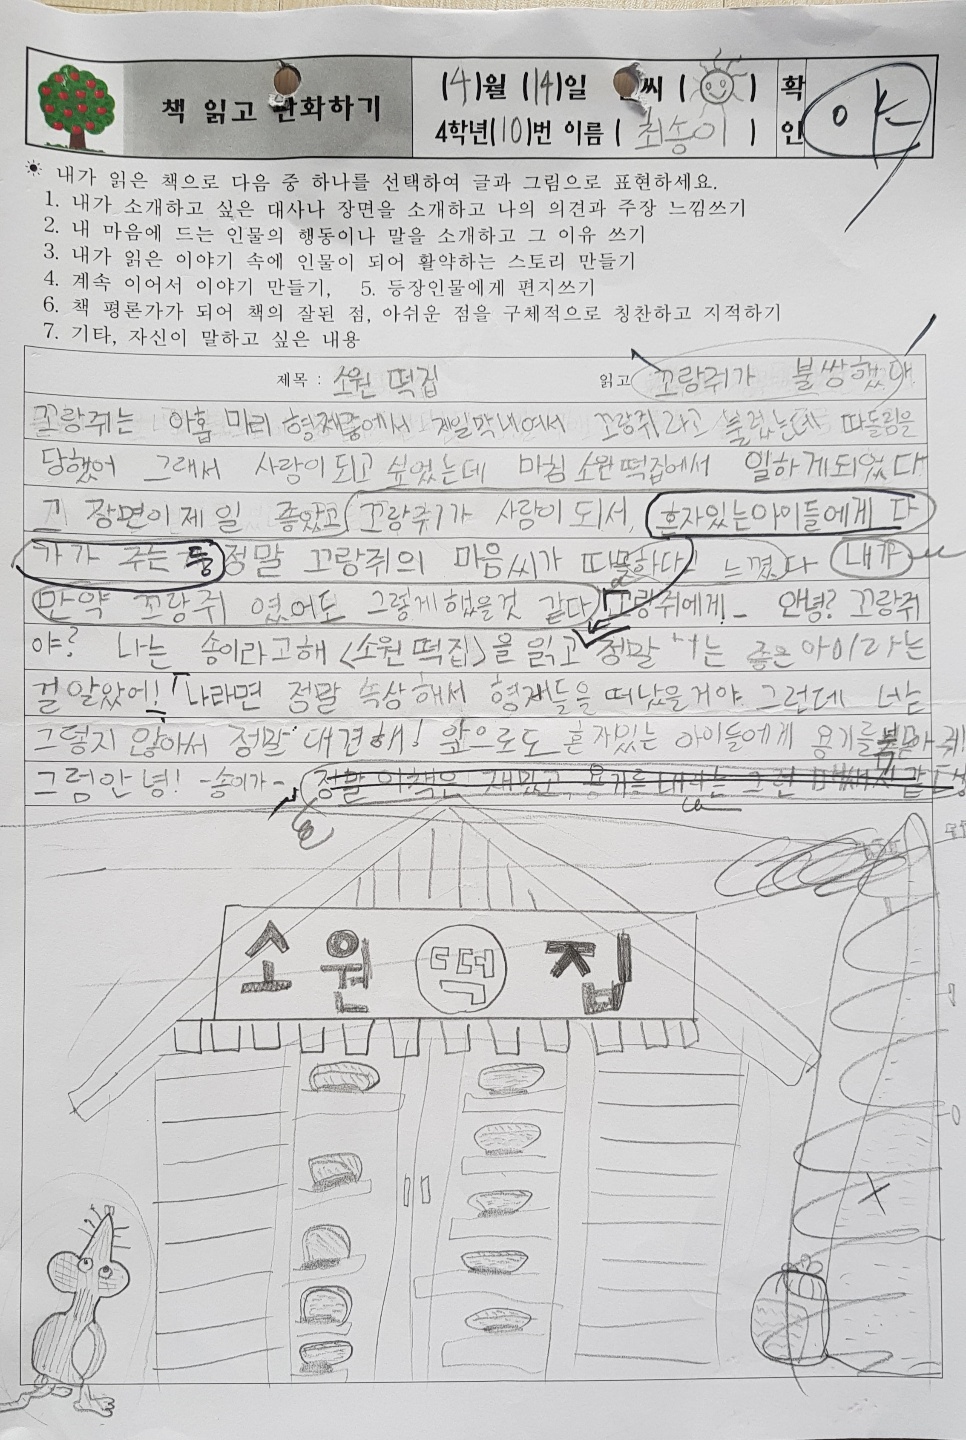 책 읽고 난화하기
(4)월 (14)일 씨 ( ) 확
4학년(10)번 이름 ( 최송이 ) 인
야
내가 읽은 책으로 다음 중 하나를 선택하여 글과 그림으로 표현하세요.
1. 내가 소개하고 싶은 대사나 장면을 소개하고 나의 의견과 주장 느낌쓰기
2. 내 마음에 드는 인물의 행동이나 말을 소개하고 그 이유 쓰기
3. 내가 읽은 이야기 속에 인물이 되어 활약하는 스토리 만들기
4. 계속 이어서 이야기 만들기, 5. 등장인물에게 편지쓰기
6. 책 평론가가 되어 책의 잘된 점, 아쉬운 점을 구체적으로 칭찬하고 지적하기
7. 기타, 자신이 말하고 싶은 내용
제목 : 소원 떡집 읽고 꼬랑쥐가 불쌍했다
꼬랑쥐는 아홉 마리 형제중에서 제일막내여서 꼬랑쥐라고 불렸는데 따돌림을
당했어 그래서 사람이되고 싶었는데 마침 소원떡집에서 일하게되었다
그 장면이제일 좋았고 꼬랑쥐가 사람이 되서, 혼자있는아이들에게 다
가가 주는 등 정말 꼬랑쥐의 마음씨가 따뜻하다 느꼈다 내가
만약 꼬랑쥐 였어도 그렇게했을것 같다 꼬랑쥐에게! - 안녕? 꼬랑쥐
야? 나는 송이라고해 <소원떡집>을 읽고 정말 너는 좋은아이라는
걸 알았어! 나라면 정말 속상해서 형재들을 떠났을거야 그런데 너는
그렇지 않아서 정말 대견해! 앞으로도 혼자있는 아이들에게 용기를 북돋아줘!
그럼안녕! -송이가- 정말 이책은 재밌고, 용기를 내라는 그런
소원 떡 집